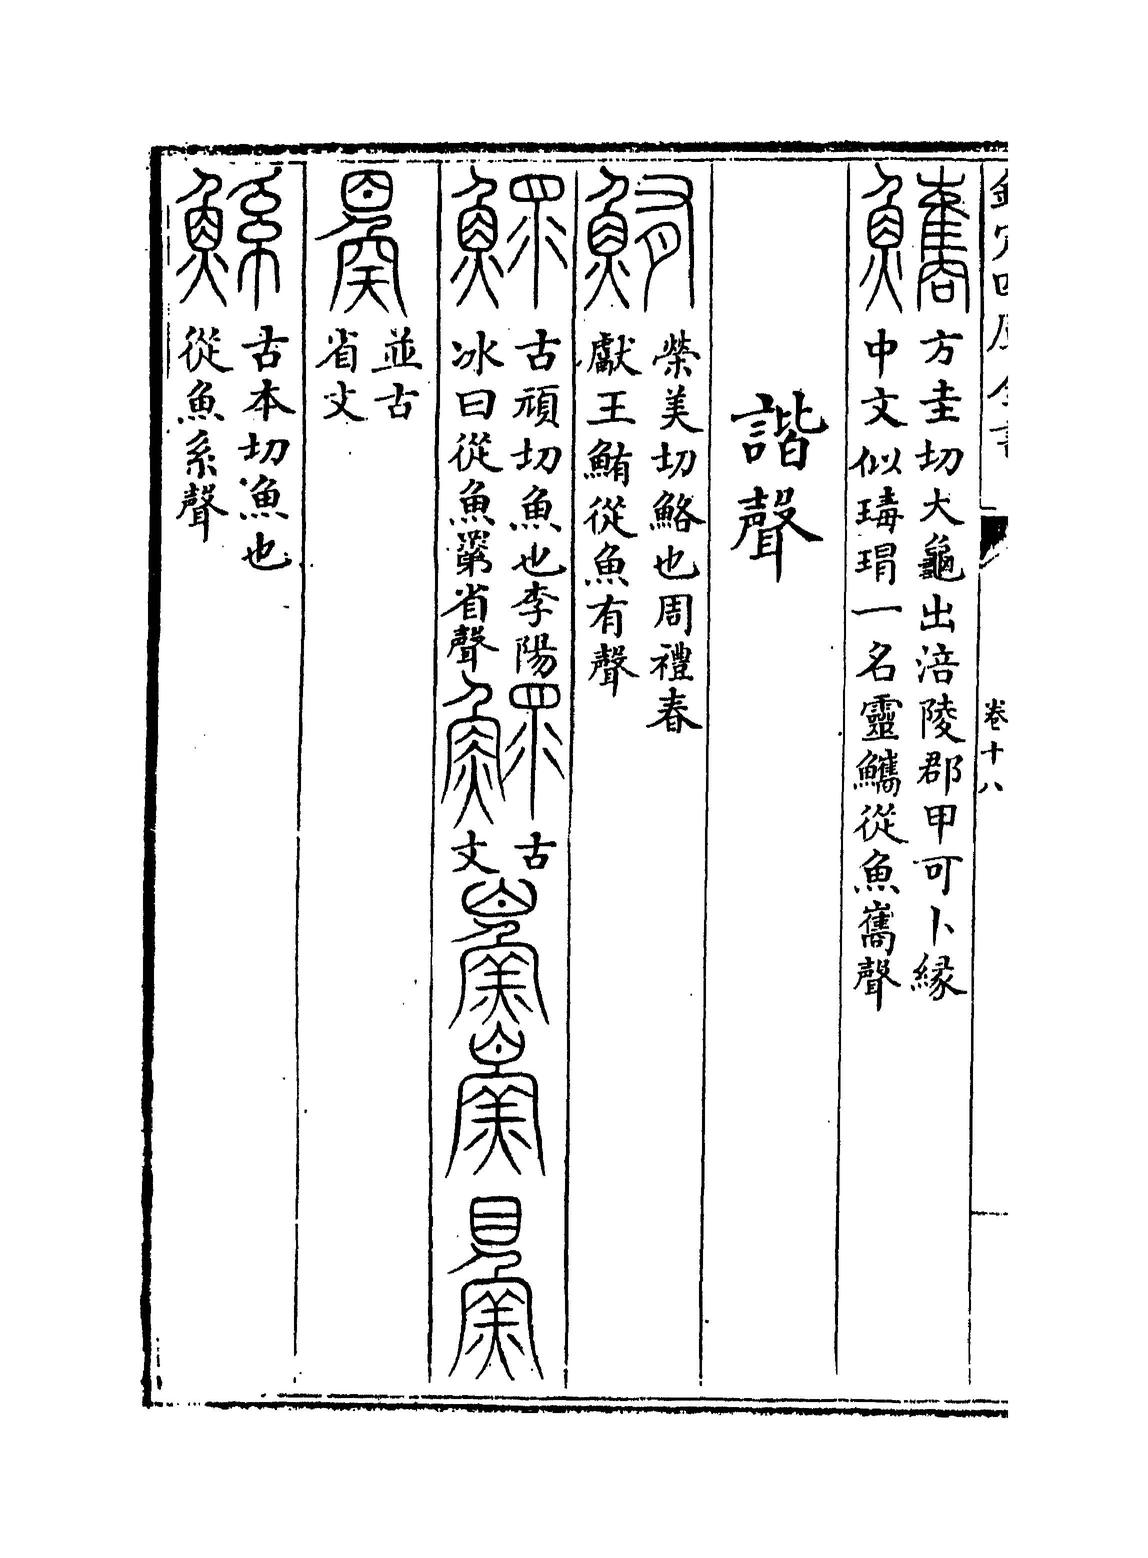 欽定四庫全書 卷十八
方圭切大龜出涪陵郡甲可卜緣
中文似瑇瑁一名靈從魚巂聲
諧聲
鮪
榮美切鮥也周禮春
獻王鮪從魚有聲
鰥
古頑切魚也李陽
冰曰從魚省聲
古
文
並古
省文
鯀
古本切漁也
從魚系聲